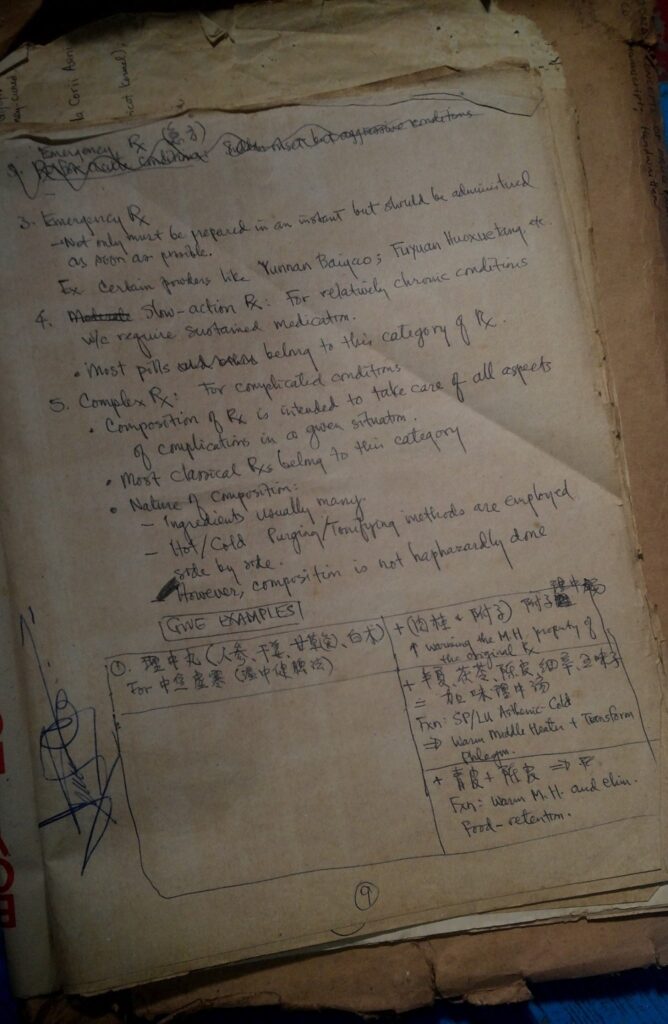 la Corii Asini
2. Emergency Rx (急方)
Rx for acute conditions. but aggressive conditions
3. Emergency Rx
- Not only must be prepared in an instant but should be administered
as soon as possible.
Ex. Certain powders like Yunnan Baiyao; Fuyuan Huoxuetang, etc.
4. Slow-action Rx: For relatively chronic conditions
w/c require sustained medication.
• Most pills belong to this category of Rx.
5. Complex Rx: For complicated conditions
• Composition of Rx is intended to take care of all aspects
of complications in a given situation.
• Most classical Rxs belong to this category
• Nature of composition:
- Ingredients usually many.
- Hot/Cold Purging/Tonifying methods are employed
side by side.
- However, composition is not haphazardly done
GIVE EXAMPLES
①. 理中丸 (人参、干姜、甘草炙、白术)
For 中焦虚寒 (温中健脾法)
+ (肉桂 & 附子) 附子理中汤
↑ warming the M.H. property of
the original Rx
+ 半夏, 茯苓, 陈皮, 细辛, 五味子
= 加味理中汤
Fxn: SP/LU Asthenic-Cold
⇒ Warm Middle Heater + Transform
Phlegm.
+ 青皮 + 陈皮 ⇒
Fxn: Warm M.H. and elim.
Food-retention.
9